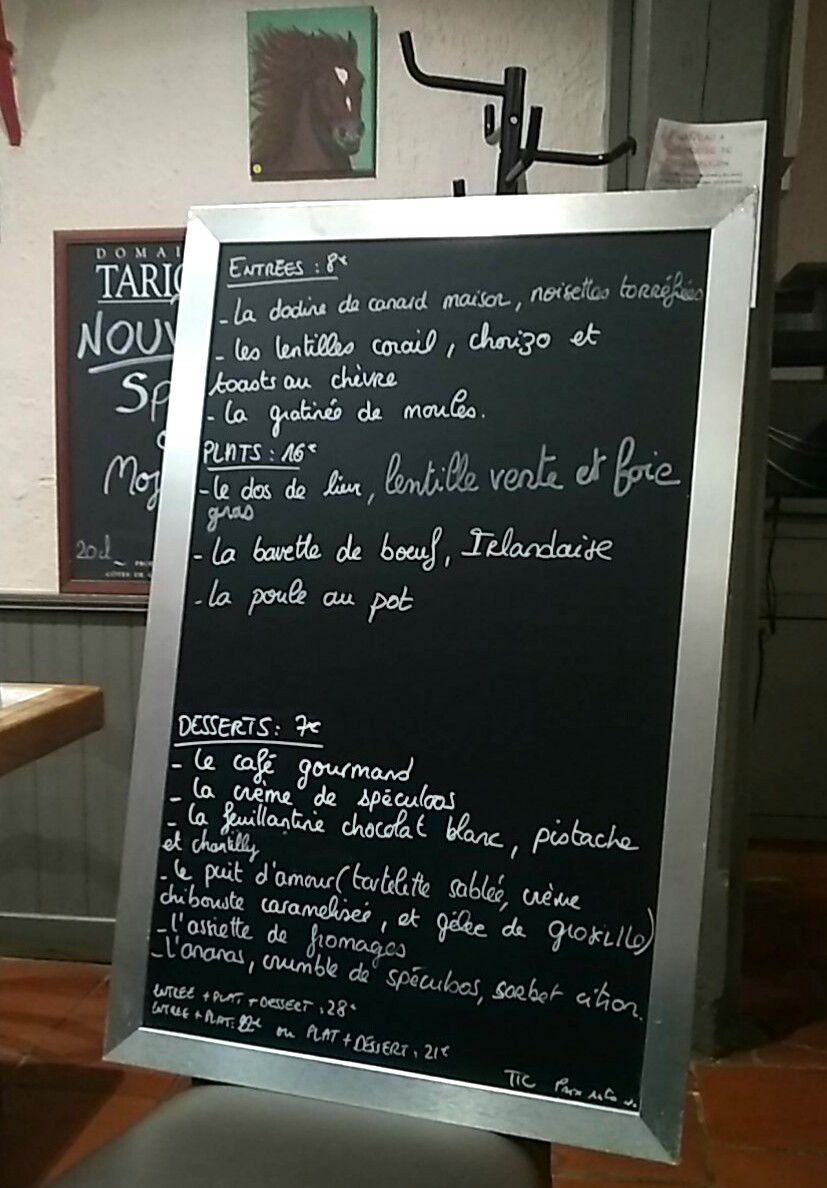 DOMAI
TARIQ
NOUV
Sp
Moj
20cl
ENTREES : 8€
- La dodine de canard maison, noisettes torréfiées
- les lentilles corail, chorizo et
toasts au chèvre
- La gratinée de moules.
PLATS : 16€
- le dos de lieu, lentille verte et foie
gras
- La bavette de boeuf, Irlandaise
- La poule au pot
DESSERTS : 7€
- le café gourmand
- la crème de spéculoos
- la feuillantine chocolat blanc, pistache
et chantilly
- le puit d'amour (tartelette sablée, crème
chibouste caramelisée, et gélee de groseille)
- l'assiette de fromages
- l'ananas, crumble de spéculoos, sorbet citron.
ENTREE + PLAT + DESSERT : 28€
ENTREE + PLAT : 22€ ou PLAT + DESSERT : 21€